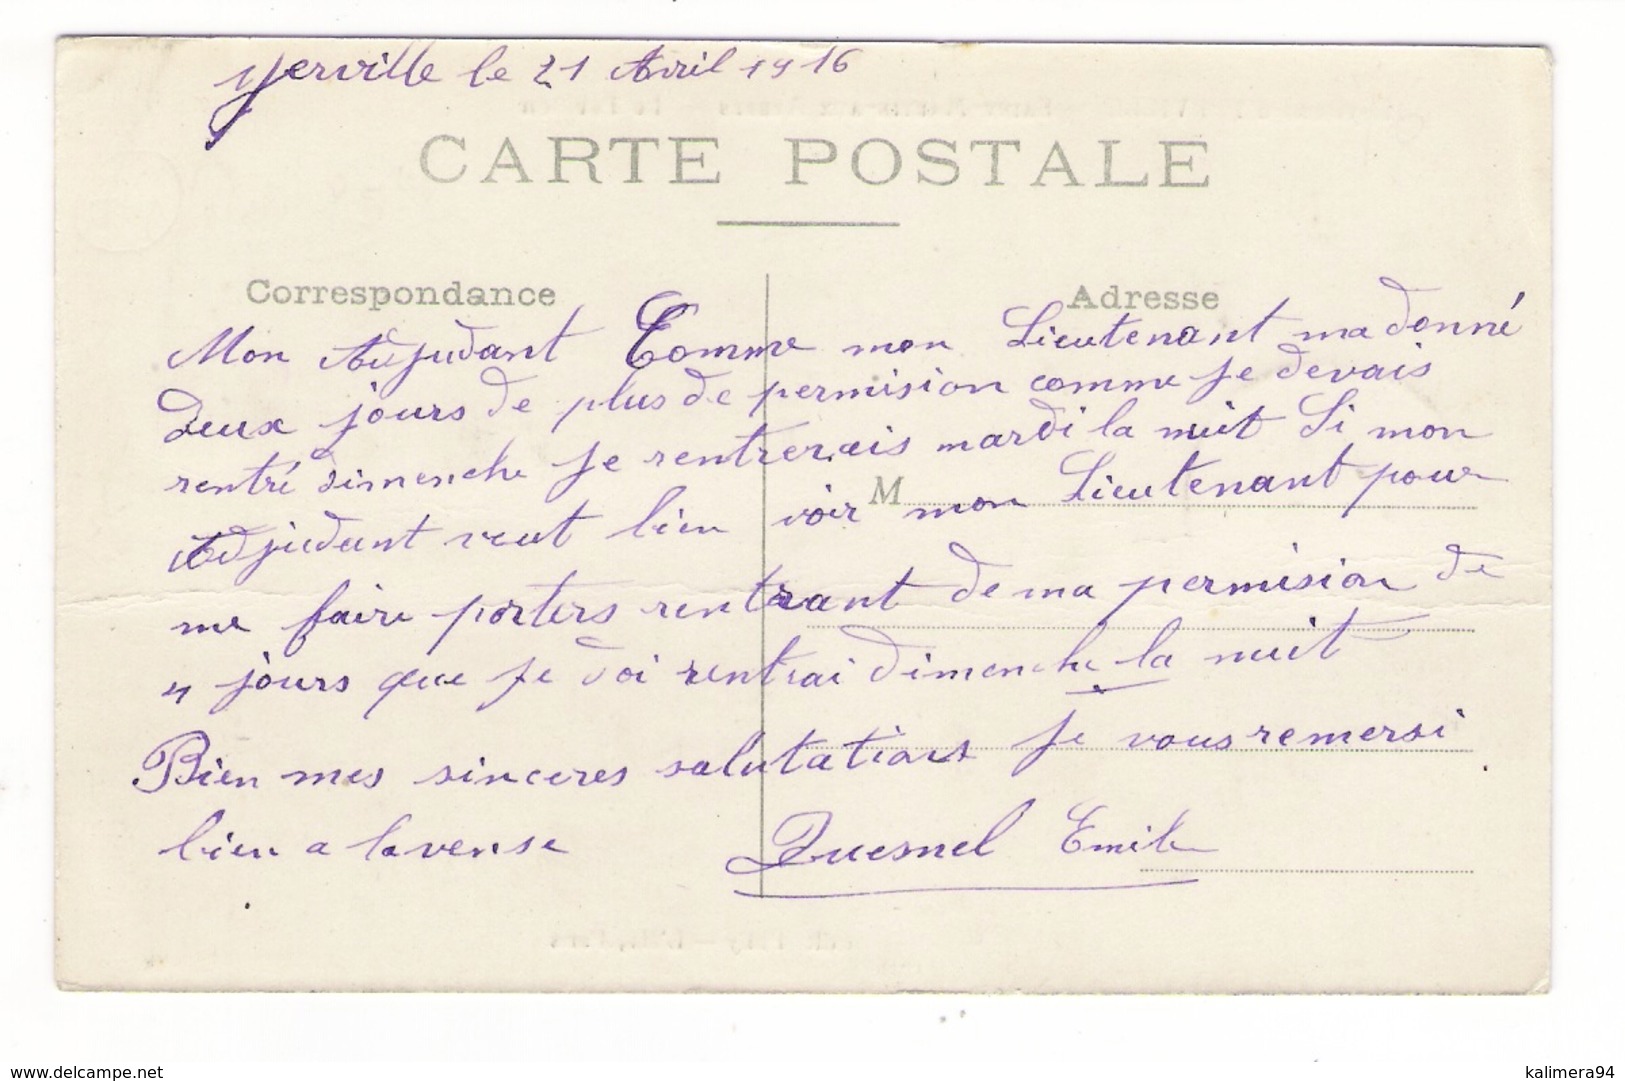 Yerville le 21 Avril 1916
CARTE POSTALE
Correspondance
Adresse
Mon Adjudant Comme mon Lieutenant ma donné
deux jours de plus de permision comme je devais
rentré dimenche je rentrerais mardi la nuit Si mon
M
Adjudant veut bien voir mon Lieutenant pour
me faire porters rentrant de ma permision de
4 jours que je doi rentrai dimenche la nuit
Bien mes sinceres salutations je vous remersi
bien a lavense
Quesnel Emile
www.delcampe.net
kalimera94